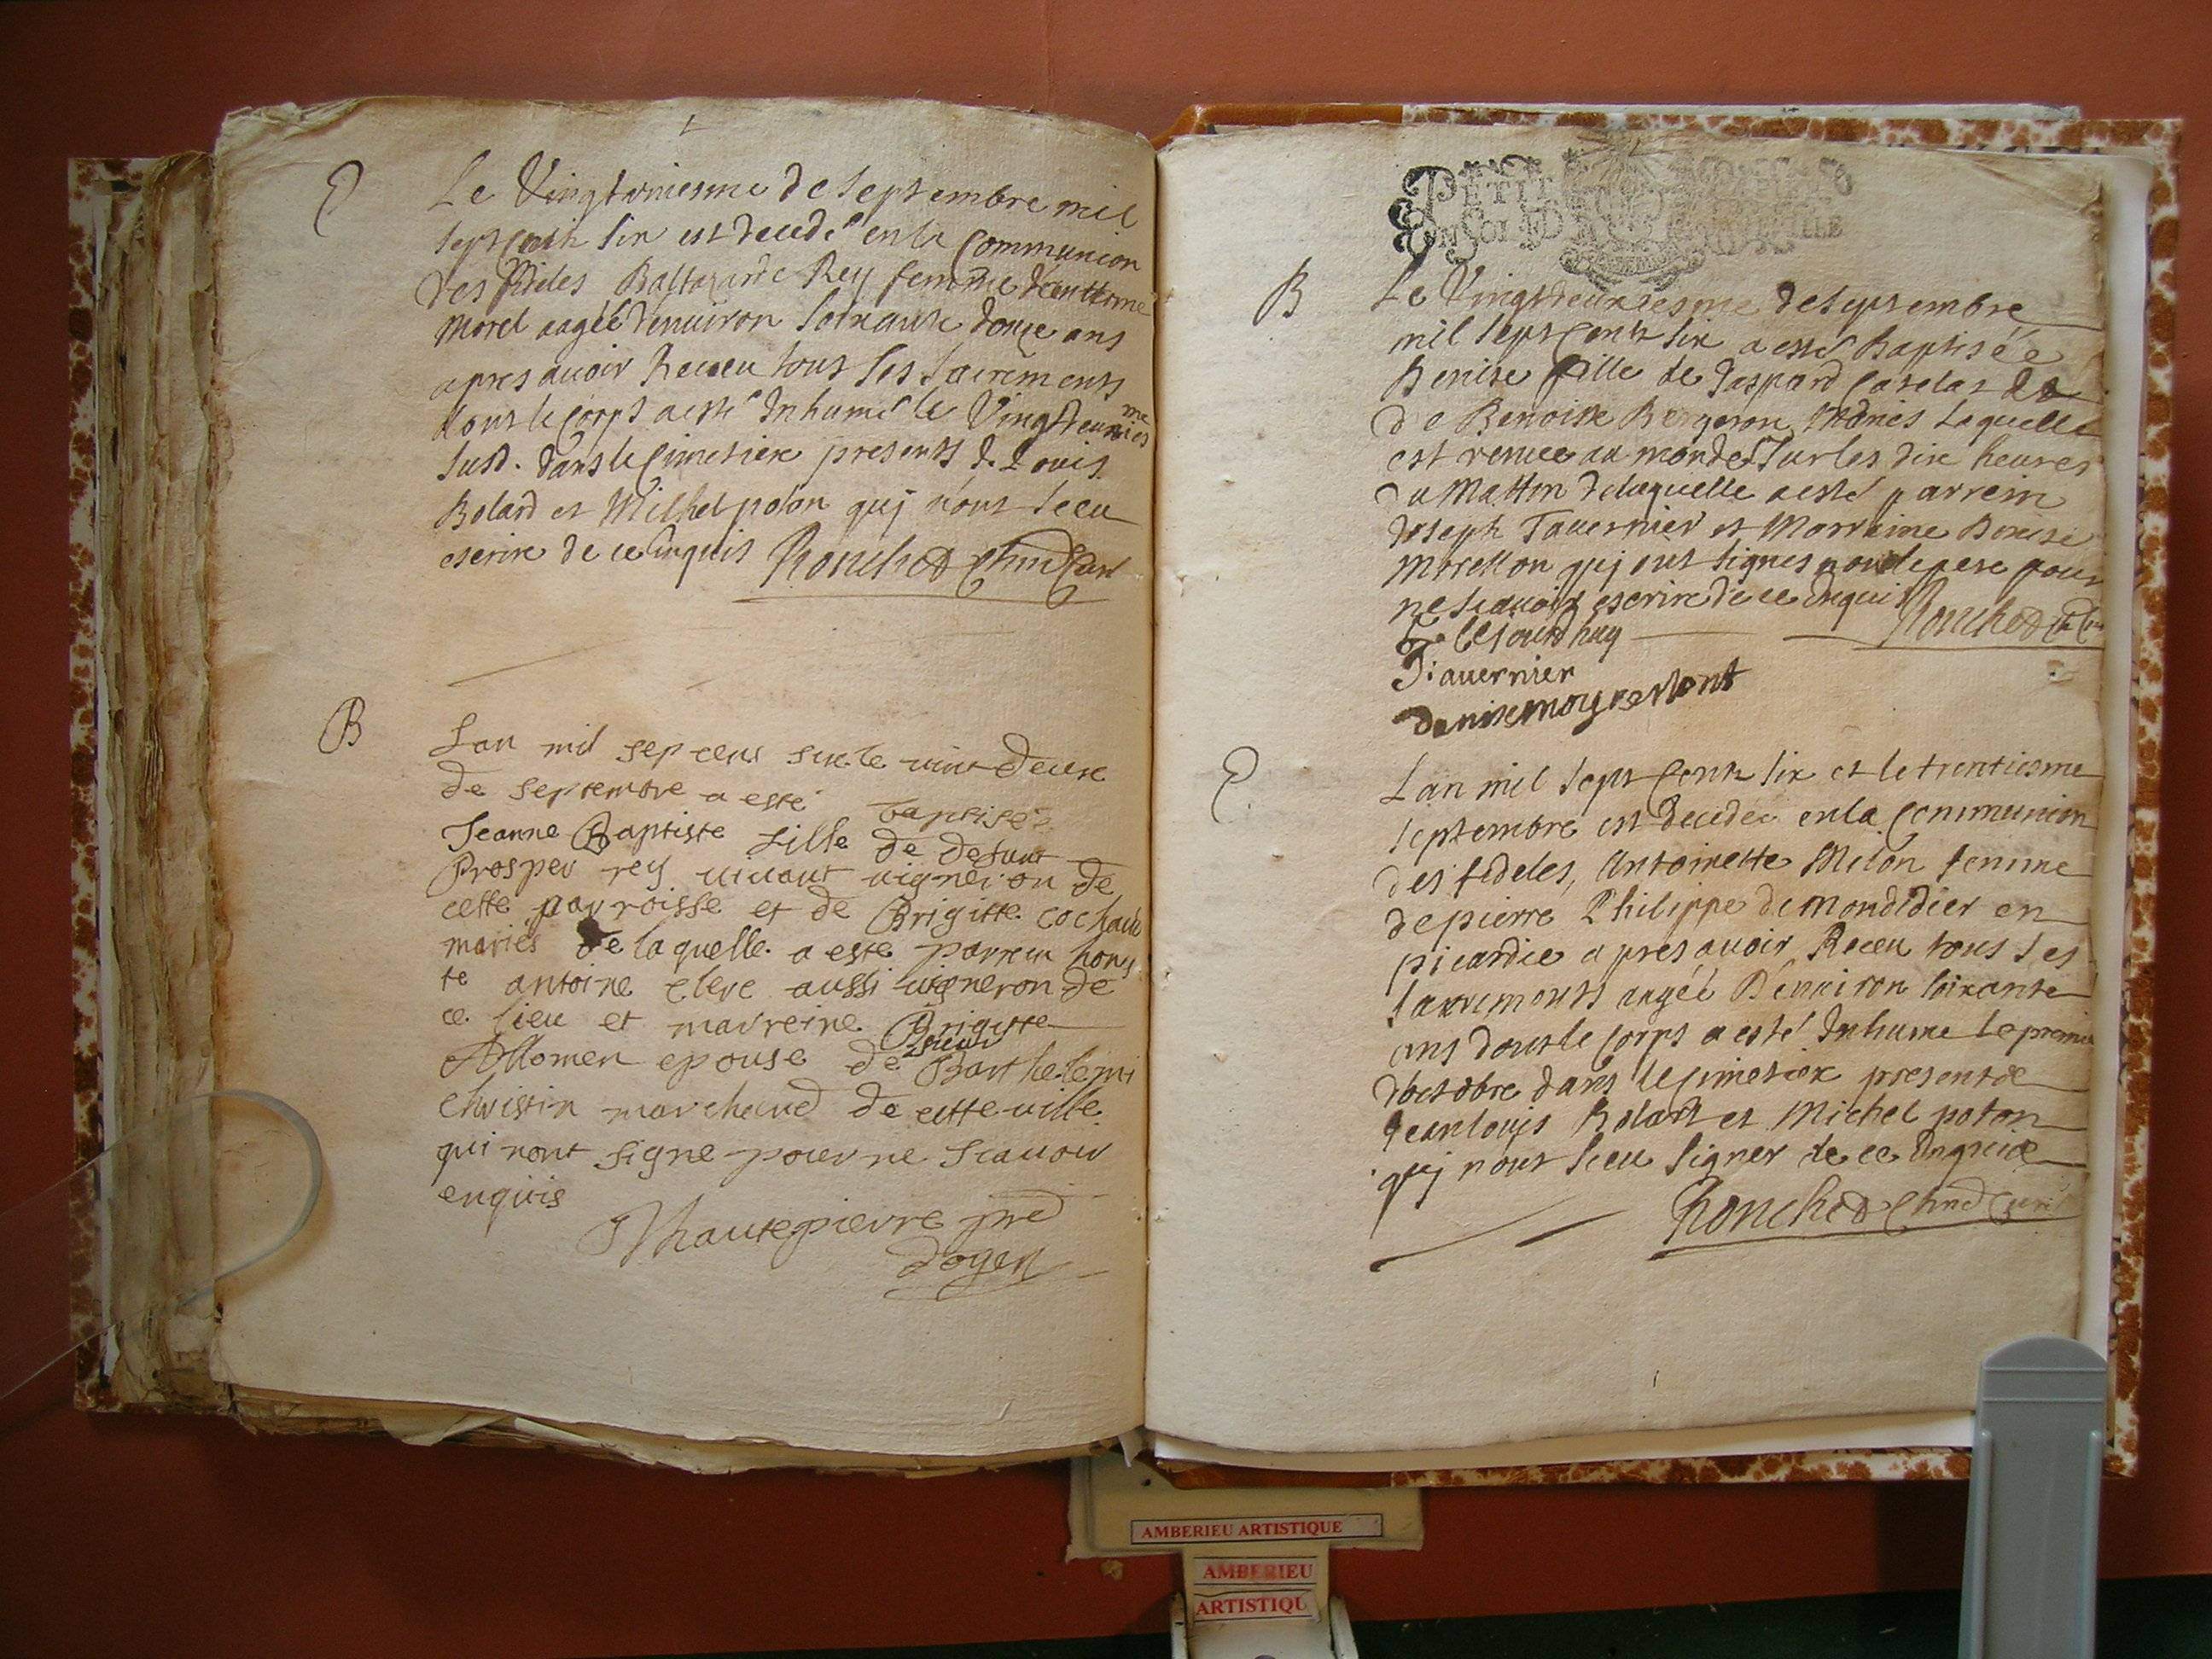 Le Vingtuniesme de septembre mil
sept cents six est decedé en la Communion
des fideles Baltazarde Rey femme
Morel aagée denuiron soixante douze ans
apres auoir Receu tous les sacrements
dont le corps a esté Inhumé le Vingtdeuxies me
susd. dans le Cimetiere presents J. Louis
Bolard et Michel poton quj n'ont sceu
escrire de ce enquis Ronched
B
Lan mil sep cens six le vint deux
de septembre a esté baptisée
Jeanne Baptiste fille de defunt
Prosper rey uiuant uigneron de
cette parroisse et de Brigitte
mariés de laquelle a esté parrein hones
te antoine clere aussi uigneron de
ce lieu et marreine Brigitte
Allomen epouse de sieur Barthelemi
christin marchand de cette uille
qui nont signe pour ne scauoir
enquis
hautepierre
doyen
PETIT
B
Le Vingtdeuxiesme de Septembre
mil sept cents six a esté Baptisée
Denise fille de Gaspard Caselas
de Benoiste Bergeron Mariés Laquelle
est venue au monde sur les dix heures
du Mattin de laquelle a esté parrein
Joseph Tauernier et Marreine Denise
quj ont signes non le pere pour
ne scauoir escrire de ce enquis Ronched
Tauernier
denise
Lan mil sept cents six et le trentiesme
septembre est decedée en la Communion
des fideles, Antoinette Milon femme
de pierre Philippe de Mondidier en
picardie apres auoir Receu tous les
sacrements aagée Denuiron soixante
ans dont le corps a esté Inhume le premier
doctobre dans le cimetiere presents
Jean louis Bolard et Michel poton
quj n'ont sceu signer de ce Enquis
Ronched Curé
AMBERIEU ARTISTIQUE
AMBERIEU
ARTISTIQU